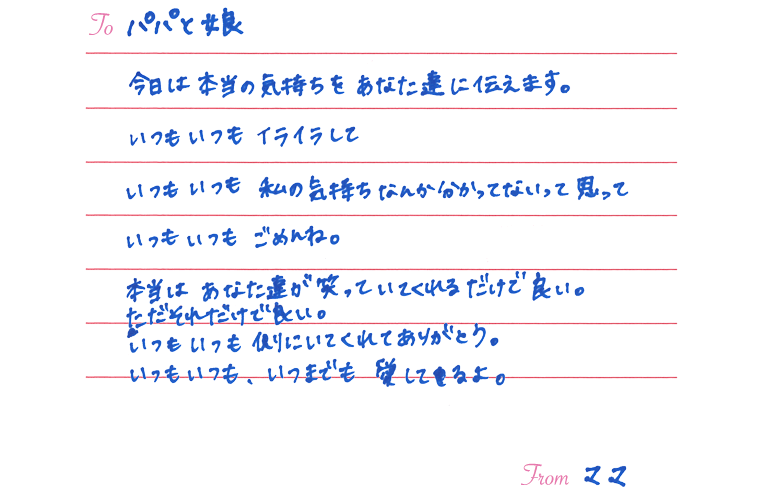 To パパと娘
今日は 本当の気持ちを あなた達に伝えます。
いつもいつも イライラして
いつもいつも 私の気持ちなんか分かってないって思って
いつもいつも ごめんね。
本当は あなた達が笑っていてくれるだけで良い。
ただそれだけで良い。
いつもいつも 側にいてくれてありがとう。
いつもいつも、いつまでも 愛してるよ。
From ママ